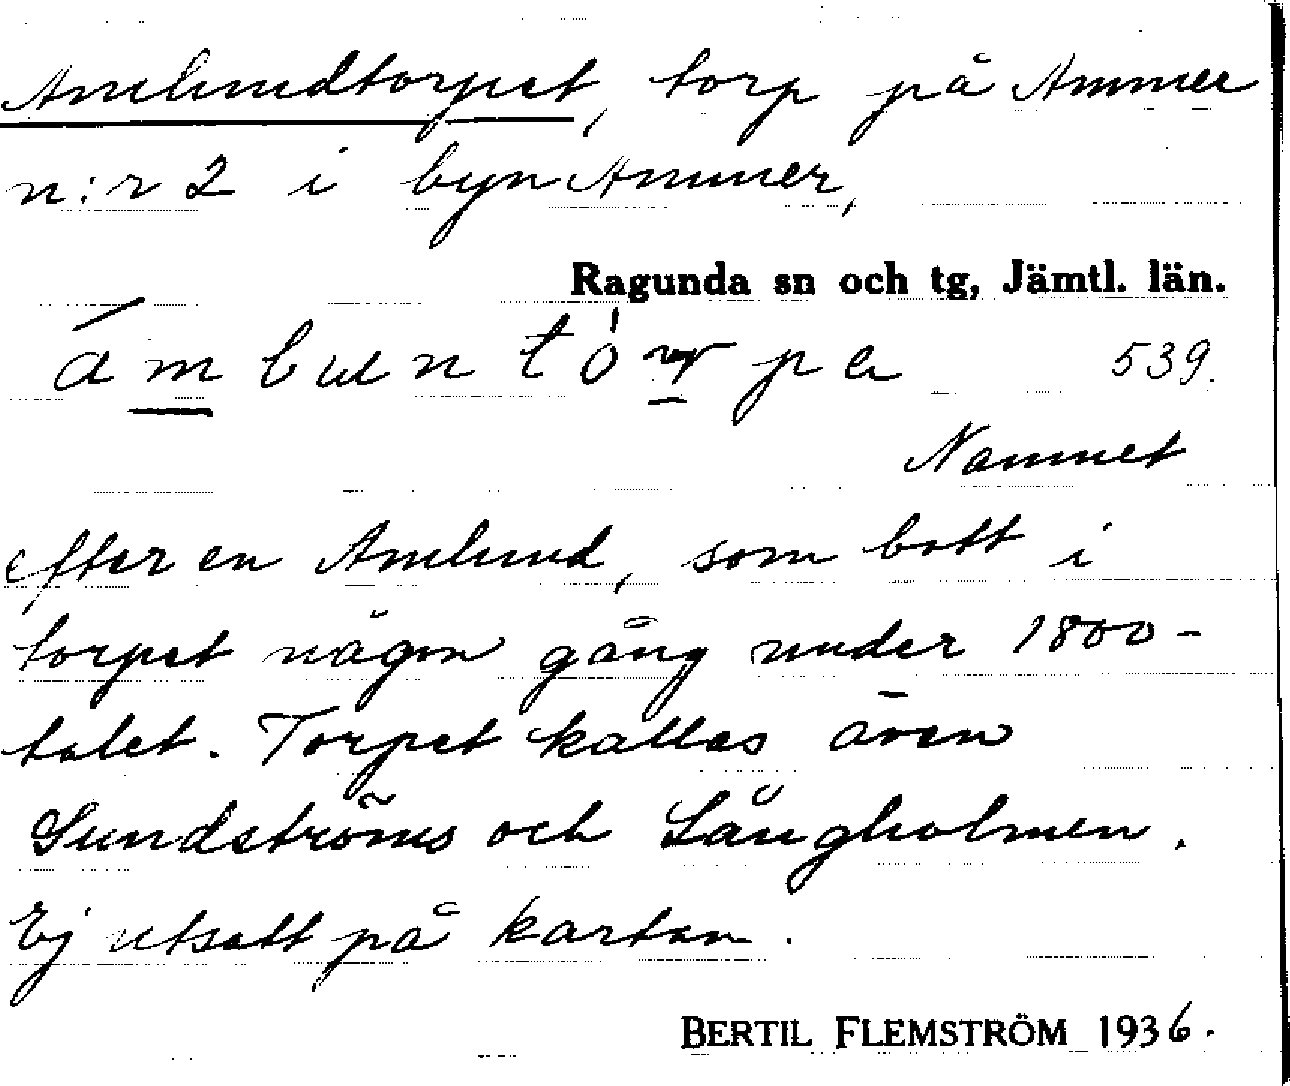 Amlundtorpet, torp på Ammer
n:r 2 i byn Ammer,
Ragunda sn och tg, Jämtl. län.
539.
Namnet
efter en Amlund, som bott i
torpet någon gång under 1800-
talet. Torpet kallas även
Sundströms och Långholmen.
Ej utsatt på kartan.
BERTIL FLEMSTRÖM 1936.